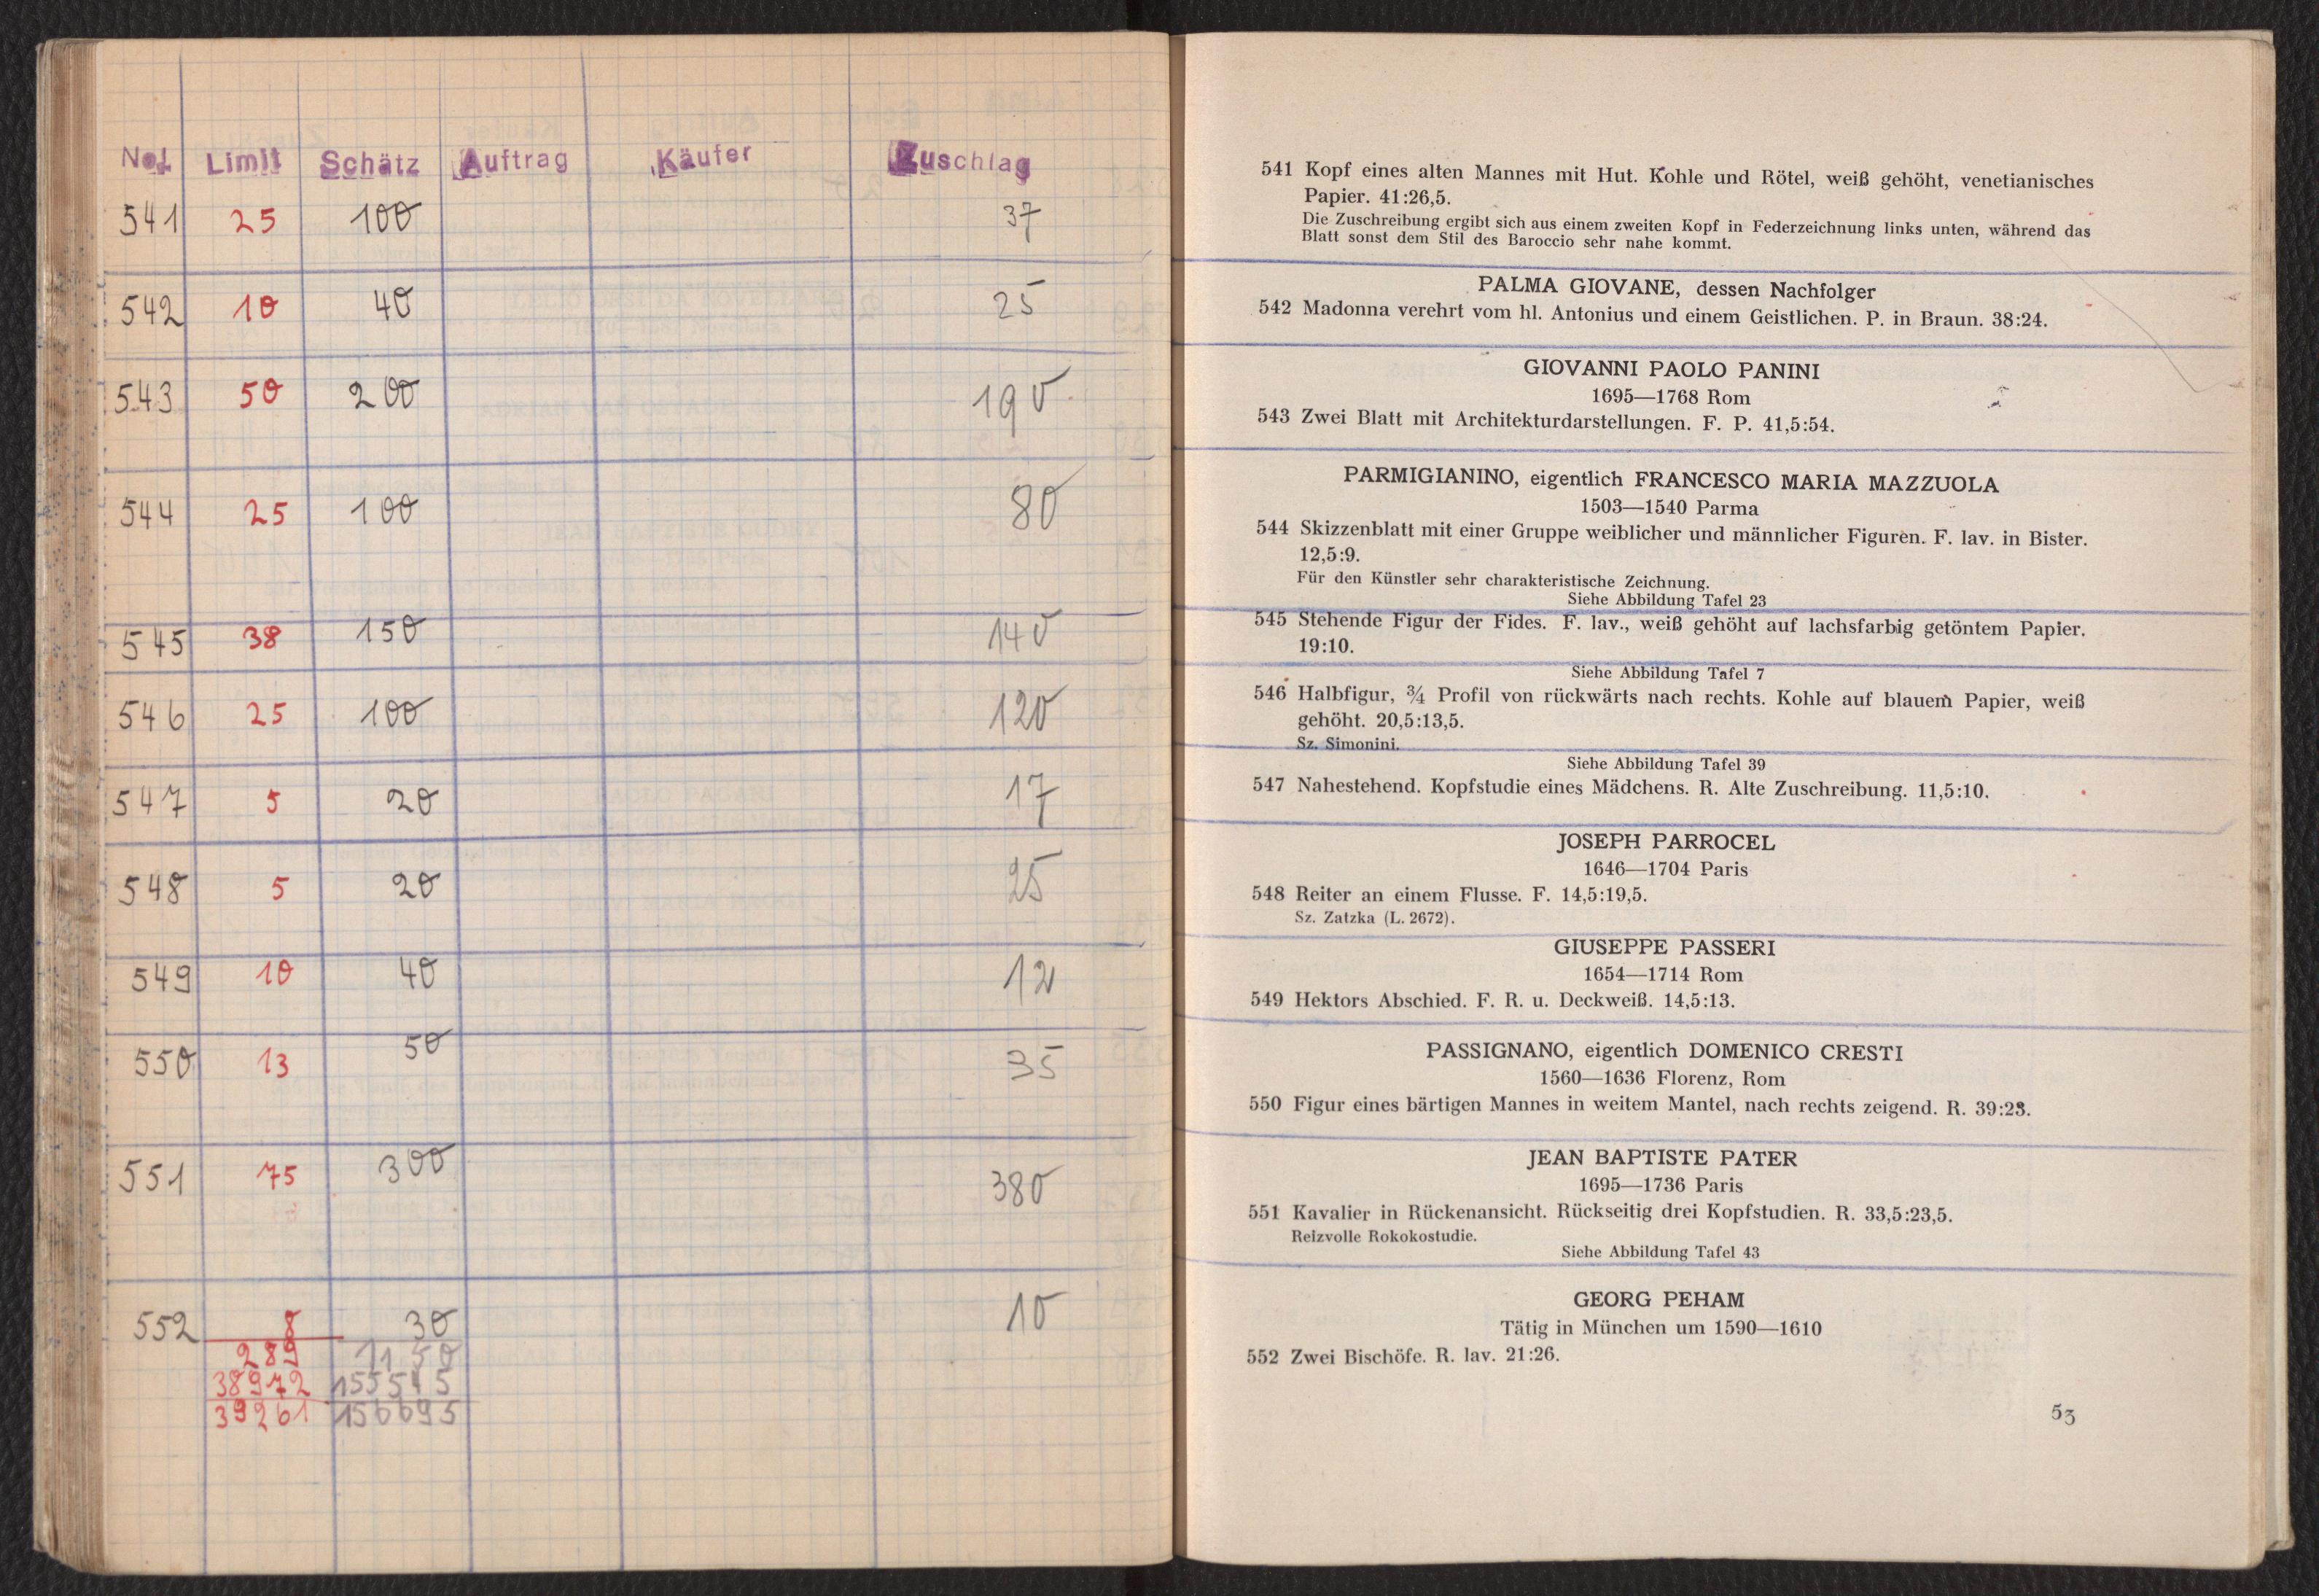 No. Limit Schätz Auftrag Käufer Zuschlag
541 25 100 37
542 10 40 25
543 50 200 190
544 25 100 80
545 38 150 140
546 25 100 120
547 5 20 17
548 5 20 25
549 10 40 12
550 13 50 35
551 75 300 380
552 8 30 10
289 1150
38972 155545
39261 156695
541 Kopf eines alten Mannes mit Hut. Kohle und Rötel, weiß gehöht, venetianisches
Papier. 41:26,5.
Die Zuschreibung ergibt sich aus einem zweiten Kopf in Federzeichnung links unten, während das
Blatt sonst dem Stil des Baroccio sehr nahe kommt.
PALMA GIOVANE, dessen Nachfolger
542 Madonna verehrt vom hl. Antonius und einem Geistlichen. P. in Braun. 38:24.
GIOVANNI PAOLO PANINI
1695—1768 Rom
543 Zwei Blatt mit Architekturdarstellungen. F. P. 41,5:54.
PARMIGIANINO, eigentlich FRANCESCO MARIA MAZZUOLA
1503—1540 Parma
544 Skizzenblatt mit einer Gruppe weiblicher und männlicher Figuren. F. lav. in Bister.
12,5:9.
Für den Künstler sehr charakteristische Zeichnung.
Siehe Abbildung Tafel 23
545 Stehende Figur der Fides. F. lav., weiß gehöht auf lachsfarbig getöntem Papier.
19:10.
Siehe Abbildung Tafel 7
546 Halbfigur, ¾ Profil von rückwärts nach rechts. Kohle auf blauem Papier, weiß
gehöht. 20,5:13,5.
Sz. Simonini.
Siehe Abbildung Tafel 39
547 Nahestehend. Kopfstudie eines Mädchens. R. Alte Zuschreibung. 11,5:10.
JOSEPH PARROCEL
1646—1704 Paris
548 Reiter an einem Flusse. F. 14,5:19,5.
Sz. Zatzka (L. 2672).
GIUSEPPE PASSERI
1654—1714 Rom
549 Hektors Abschied. F. R. u. Deckweiß. 14,5:13.
PASSIGNANO, eigentlich DOMENICO CRESTI
1560—1636 Florenz, Rom
550 Figur eines bärtigen Mannes in weitem Mantel, nach rechts zeigend. R. 39:23.
JEAN BAPTISTE PATER
1695—1736 Paris
551 Kavalier in Rückenansicht. Rückseitig drei Kopfstudien. R. 33,5:23,5.
Reizvolle Rokokostudie.
Siehe Abbildung Tafel 43
GEORG PEHAM
Tätig in München um 1590—1610
552 Zwei Bischöfe. R. lav. 21:26.
53